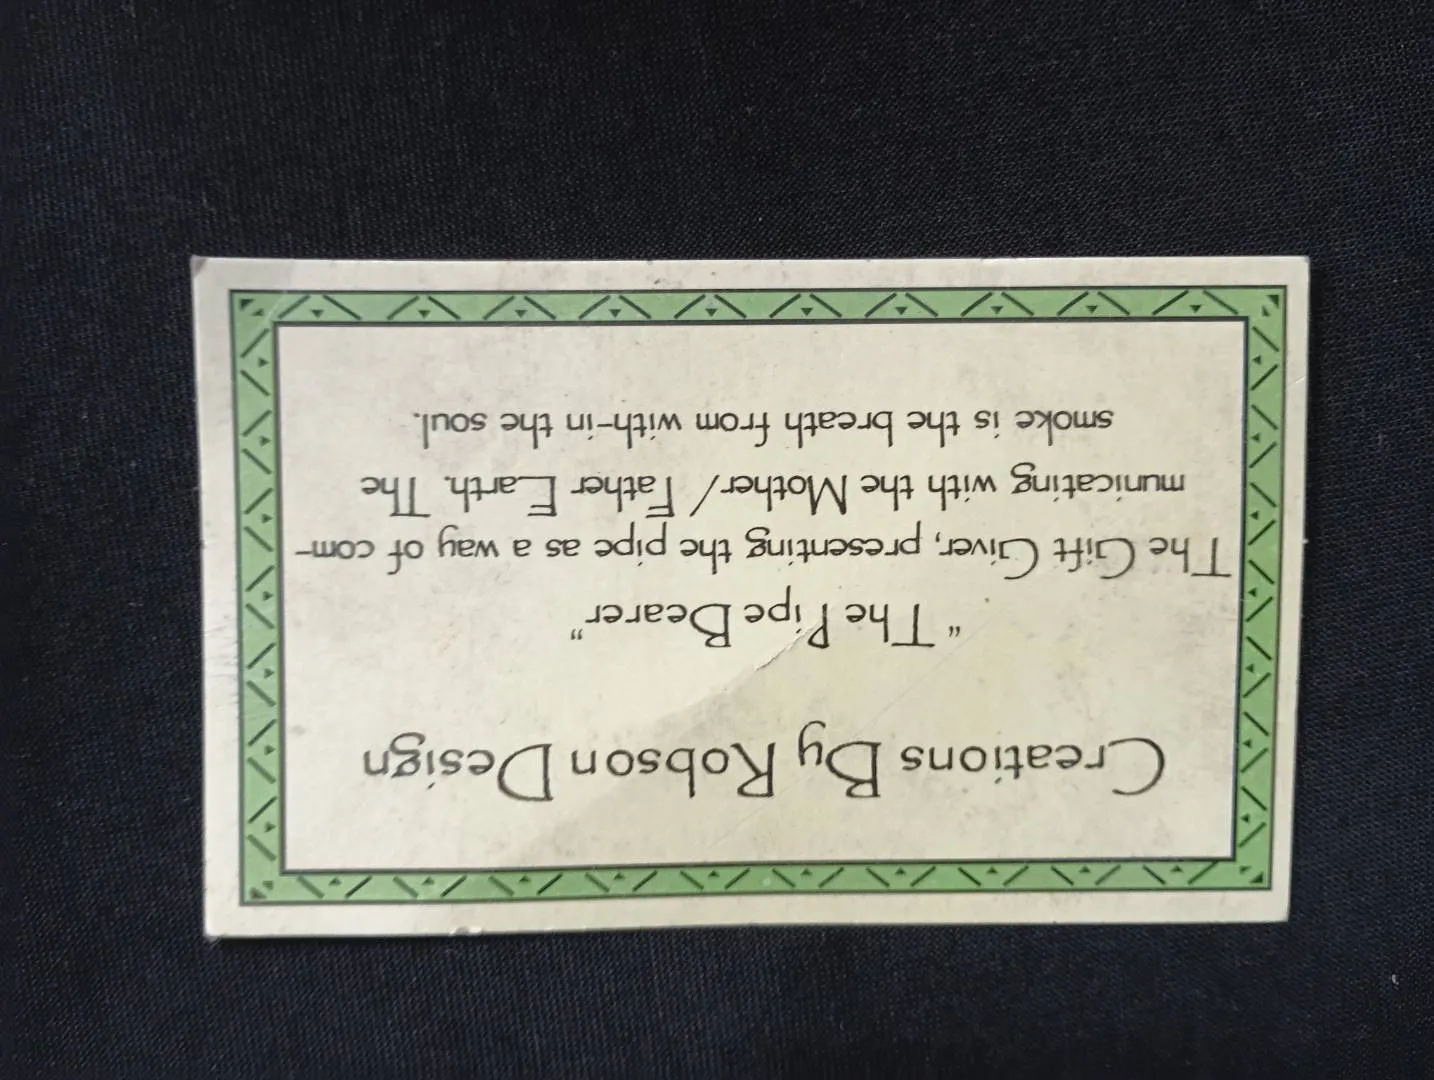 Creations By Robson Design
"The Pipe Bearer"
The Gift Giver, presenting the pipe as a way of com-
municating with the Mother/Father Earth. The
smoke is the breath from with-in the soul.